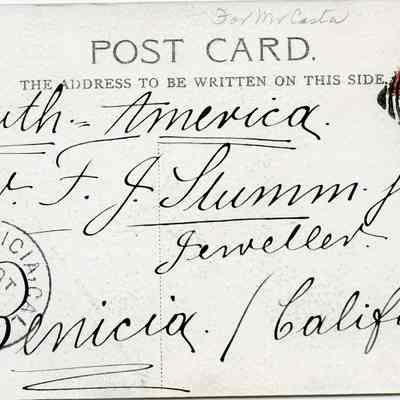 For Mr Costa
POST CARD.
THE ADDRESS TO BE WRITTEN ON THIS SIDE.
uth-America.
r. F. J. Stumm. J
Jeweller.
Benicia. / Califo
ICIA, CAL